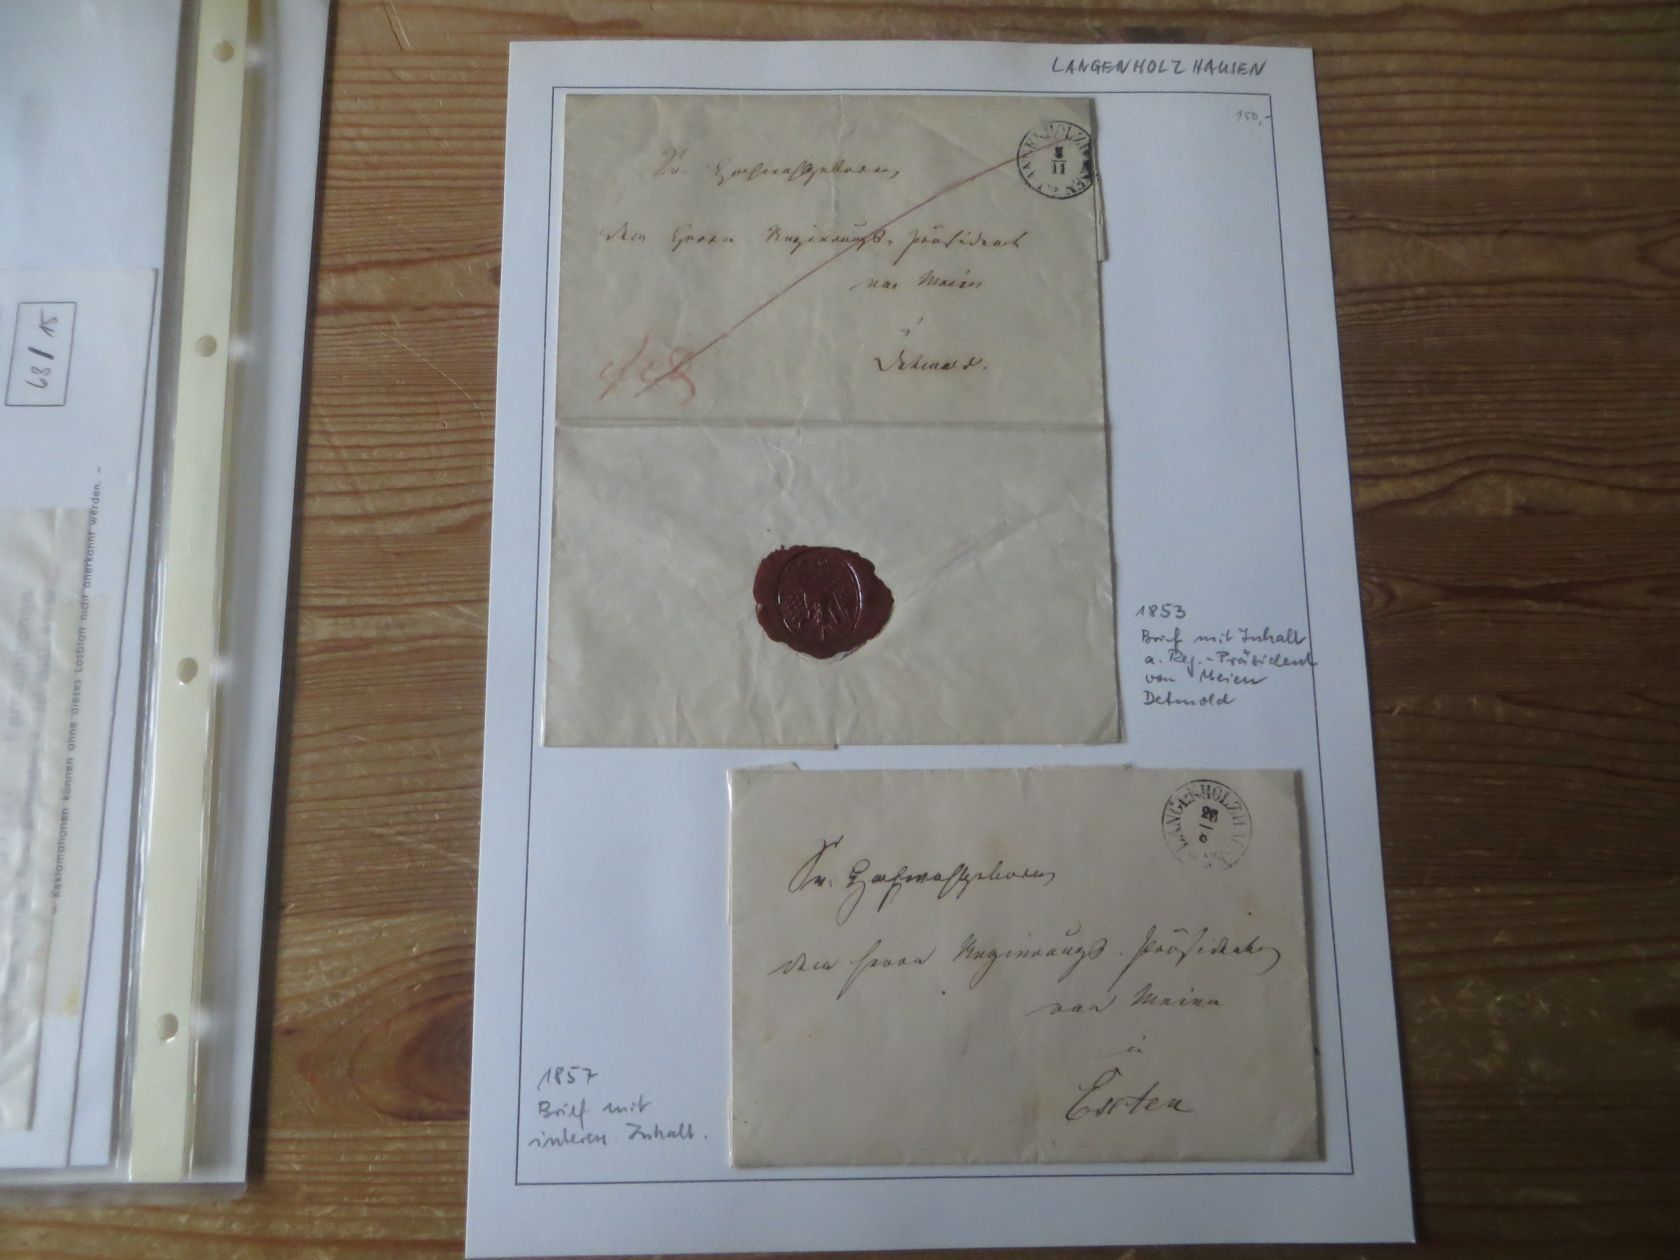 LANGENHOLZHAUSEN
150,-
LANGENHOLZHAUSEN
8
11
Sr. Hochwohlgeboren
dem Herrn Regierungs-Präsident
von Meien
Detmold.
1853
Brief mit Inhalt
a. Reg.-Präsident
von Meien
Detmold
LANGENHOLZHAUSEN
Sr. Hochwohlgeboren
dem Herrn Regierungs-Präsidenten
von Meien
in
1857
Brief mit
interess. Inhalt.
68/15
- Reklamationen können ohne dieses Losblatt nicht anerkannt werden. -